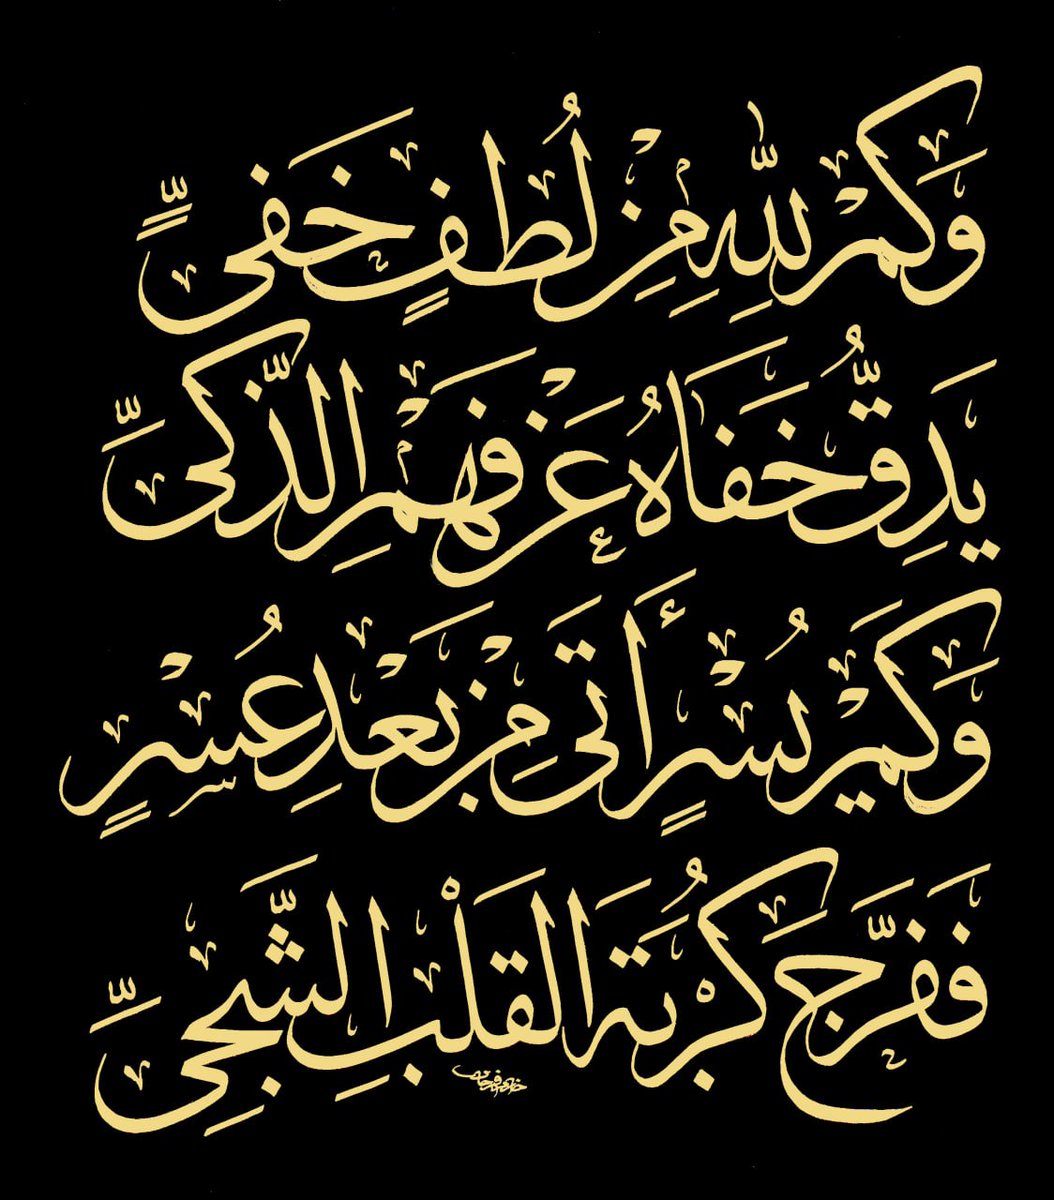 وَكَمْ لِلّٰهِ مِنْ لُطْفٍ خَفِيٍّ
يَدِقُّ خَفَاهُ عَنْ فَهْمِ الذَّكِيِّ
وَكَمْ يُسْرٍ أَتَى مِنْ بَعْدِ عُسْرٍ
فَفَرَّجَ كُرْبَةَ الْقَلْبِ الشَّجِيِّ